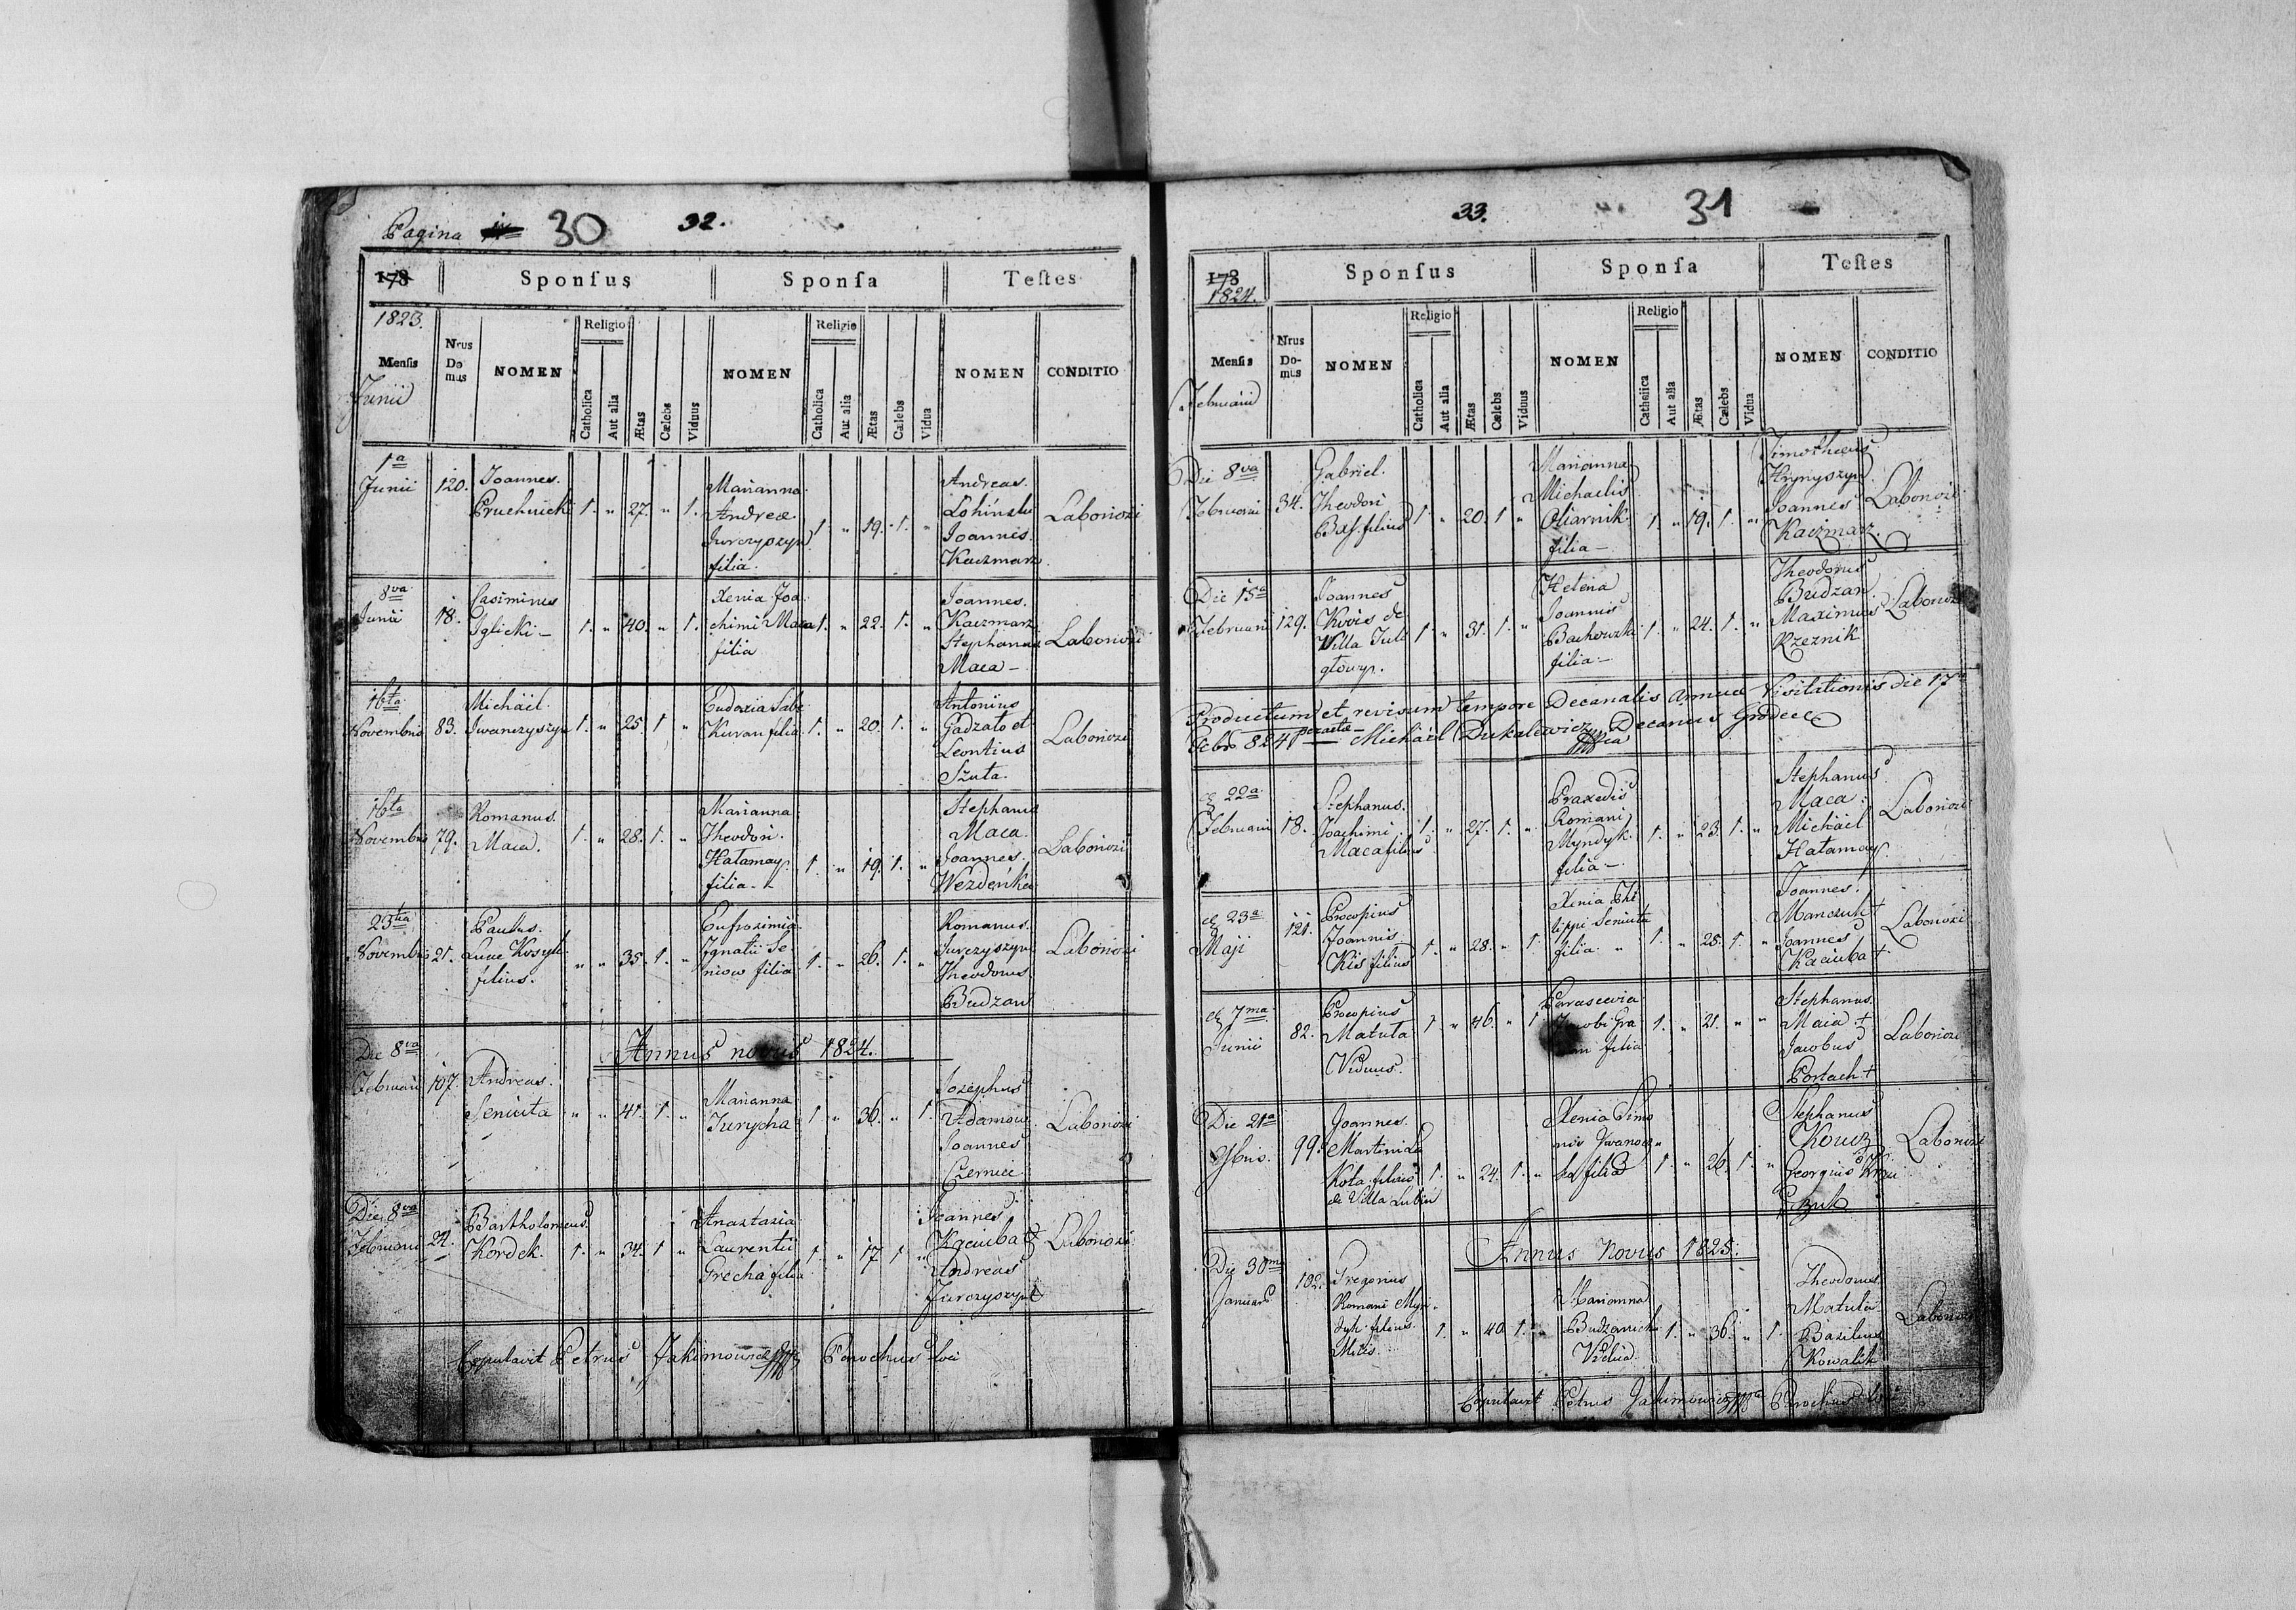 Pagina 30 32.
178 Sponſus Sponſa Teſtes
1823.
Menſis Nrus Domus NOMEN Religio Catholica Aut alia Ætas Cælebs Viduus NOMEN Religio Catholica Aut alia Ætas Cælebs Vidua NOMEN CONDITIO
Junii
1a Junii 120. Joannes. Pruchnicki 1. " 27. " 1. Marianna Andreæ Jurczyszyn filia. 1. " 19. 1. " Andreas. Joannes. Kaczmarz Laboriozi
8va Junii 18. Casimirus Iglicki - 1. " 40. " 1. Xenia Joachimi Maca filia 1. " 22. 1. " Joannes. Kaczmarz Stephanus Maca - Laboriozi
16ta Novembris 83. Michäil. Iwanczyszyn 1. " 25. 1 " Eudoxia Kuran filia 1. " 20. 1. " Antonius Gadzato et Leontius Szuta. Laboriozi
16ta Novembris 79. Romanus. Maca. 1. " 28. 1. " Marianna Theodori. Hatamay filia. 1. " 19. 1. " Stephanus Maca. Joannes. Wezdenka Laboriozi
23tia Novembris 21. Paulus. Lucæ filius. " " 35. 1. " Eufrozimia Ignatii Seniow filia 1. " 26. 1. " Romanus. Jurczyszyn Theodorus Budzan Laboriozi
Annus novus 1824.
Die 8va Februarii 107. Andreas. Seniuta " " 41. 1. " Marianna Jurycha 1. " 36. " 1. Josephus Adamow Joannes Czerniec Laboriozi
Die 8va Februarii 22. Bartholomeus Kordek. 1. " 34. 1 " Anastazia Laurentii Grecha filia 1. " 17 1 " Joannes Kaciuba et Andreas Jurczyszyn Laboriozi
Copulavit Petrus Jakimowicz Parochus loci
33. 31
178 Sponſus Sponſa Teſtes
1824.
Menſis Nrus Domus NOMEN Religio Catholica Aut alia Ætas Cælebs Viduus NOMEN Religio Catholica Aut alia Ætas Cælebs Vidua NOMEN CONDITIO
Februarii
Die 8va Februarii 34. Gabriel. Theodori filius 1. " 20. 1 " Marianna Michaelis Oliarnik filia - 1. " 19. 1. " Timotheus Hrynyszyn Joannes Kaczmarz. Laboriozi
Die 15a Februarii 129. Joannes de Villa 1 " 31. 1. " Helena Joannis Bachowski filia - 1. " 24. 1. " Theodorus Budzan Maximus Rzeznik Laboriozi
Productum et revisum tempore Decanalis Annuæ Visitationis die 17
8br 824 peractæ - Michäel Dukalewicz Decanus Grodecc
22a Februarii 18. Stephanus. Joachimi Maca filius 1. " 27. 1. " Praxedis Romani Myndyk filia - 1. " 23. 1. " Stephanus Maca Michäil Hatamay. Laboriozi
23a Maji 121. Procopius Joannis Kis filius 1. " 28. " 1. Xenia Philippi Seniuta filia. 1. " 25. 1. " Joannes. Manczuk + Joannes Kaciuba + Laboriozi
7ma Junii 82. Procopius Matuta Viduus. 1 " 46. " 1 Parascevia Jacobi filia 1. " 21. " " Stephanus Maca + Jacobus Portach + Laboriozi
Die 21a 9bris. 99. Joannes. Martini Kota filius de Villa Lubin 1. " 24. 1. " Xenia Simonis filia 1. " 26. 1. " Stephanus Kowcz Georgius Laboriozi
Annus Novus 1825.
Die 30ma Januarii 102. Gregorius Romani Myndyk filius. 1. " 40. 1. " Marianna Vidua 1. " 36. " 1. Theodorus. Matula Basilius Kowalik Laboriozi
Copulavit Petrus Jakimowicz Parochus loci